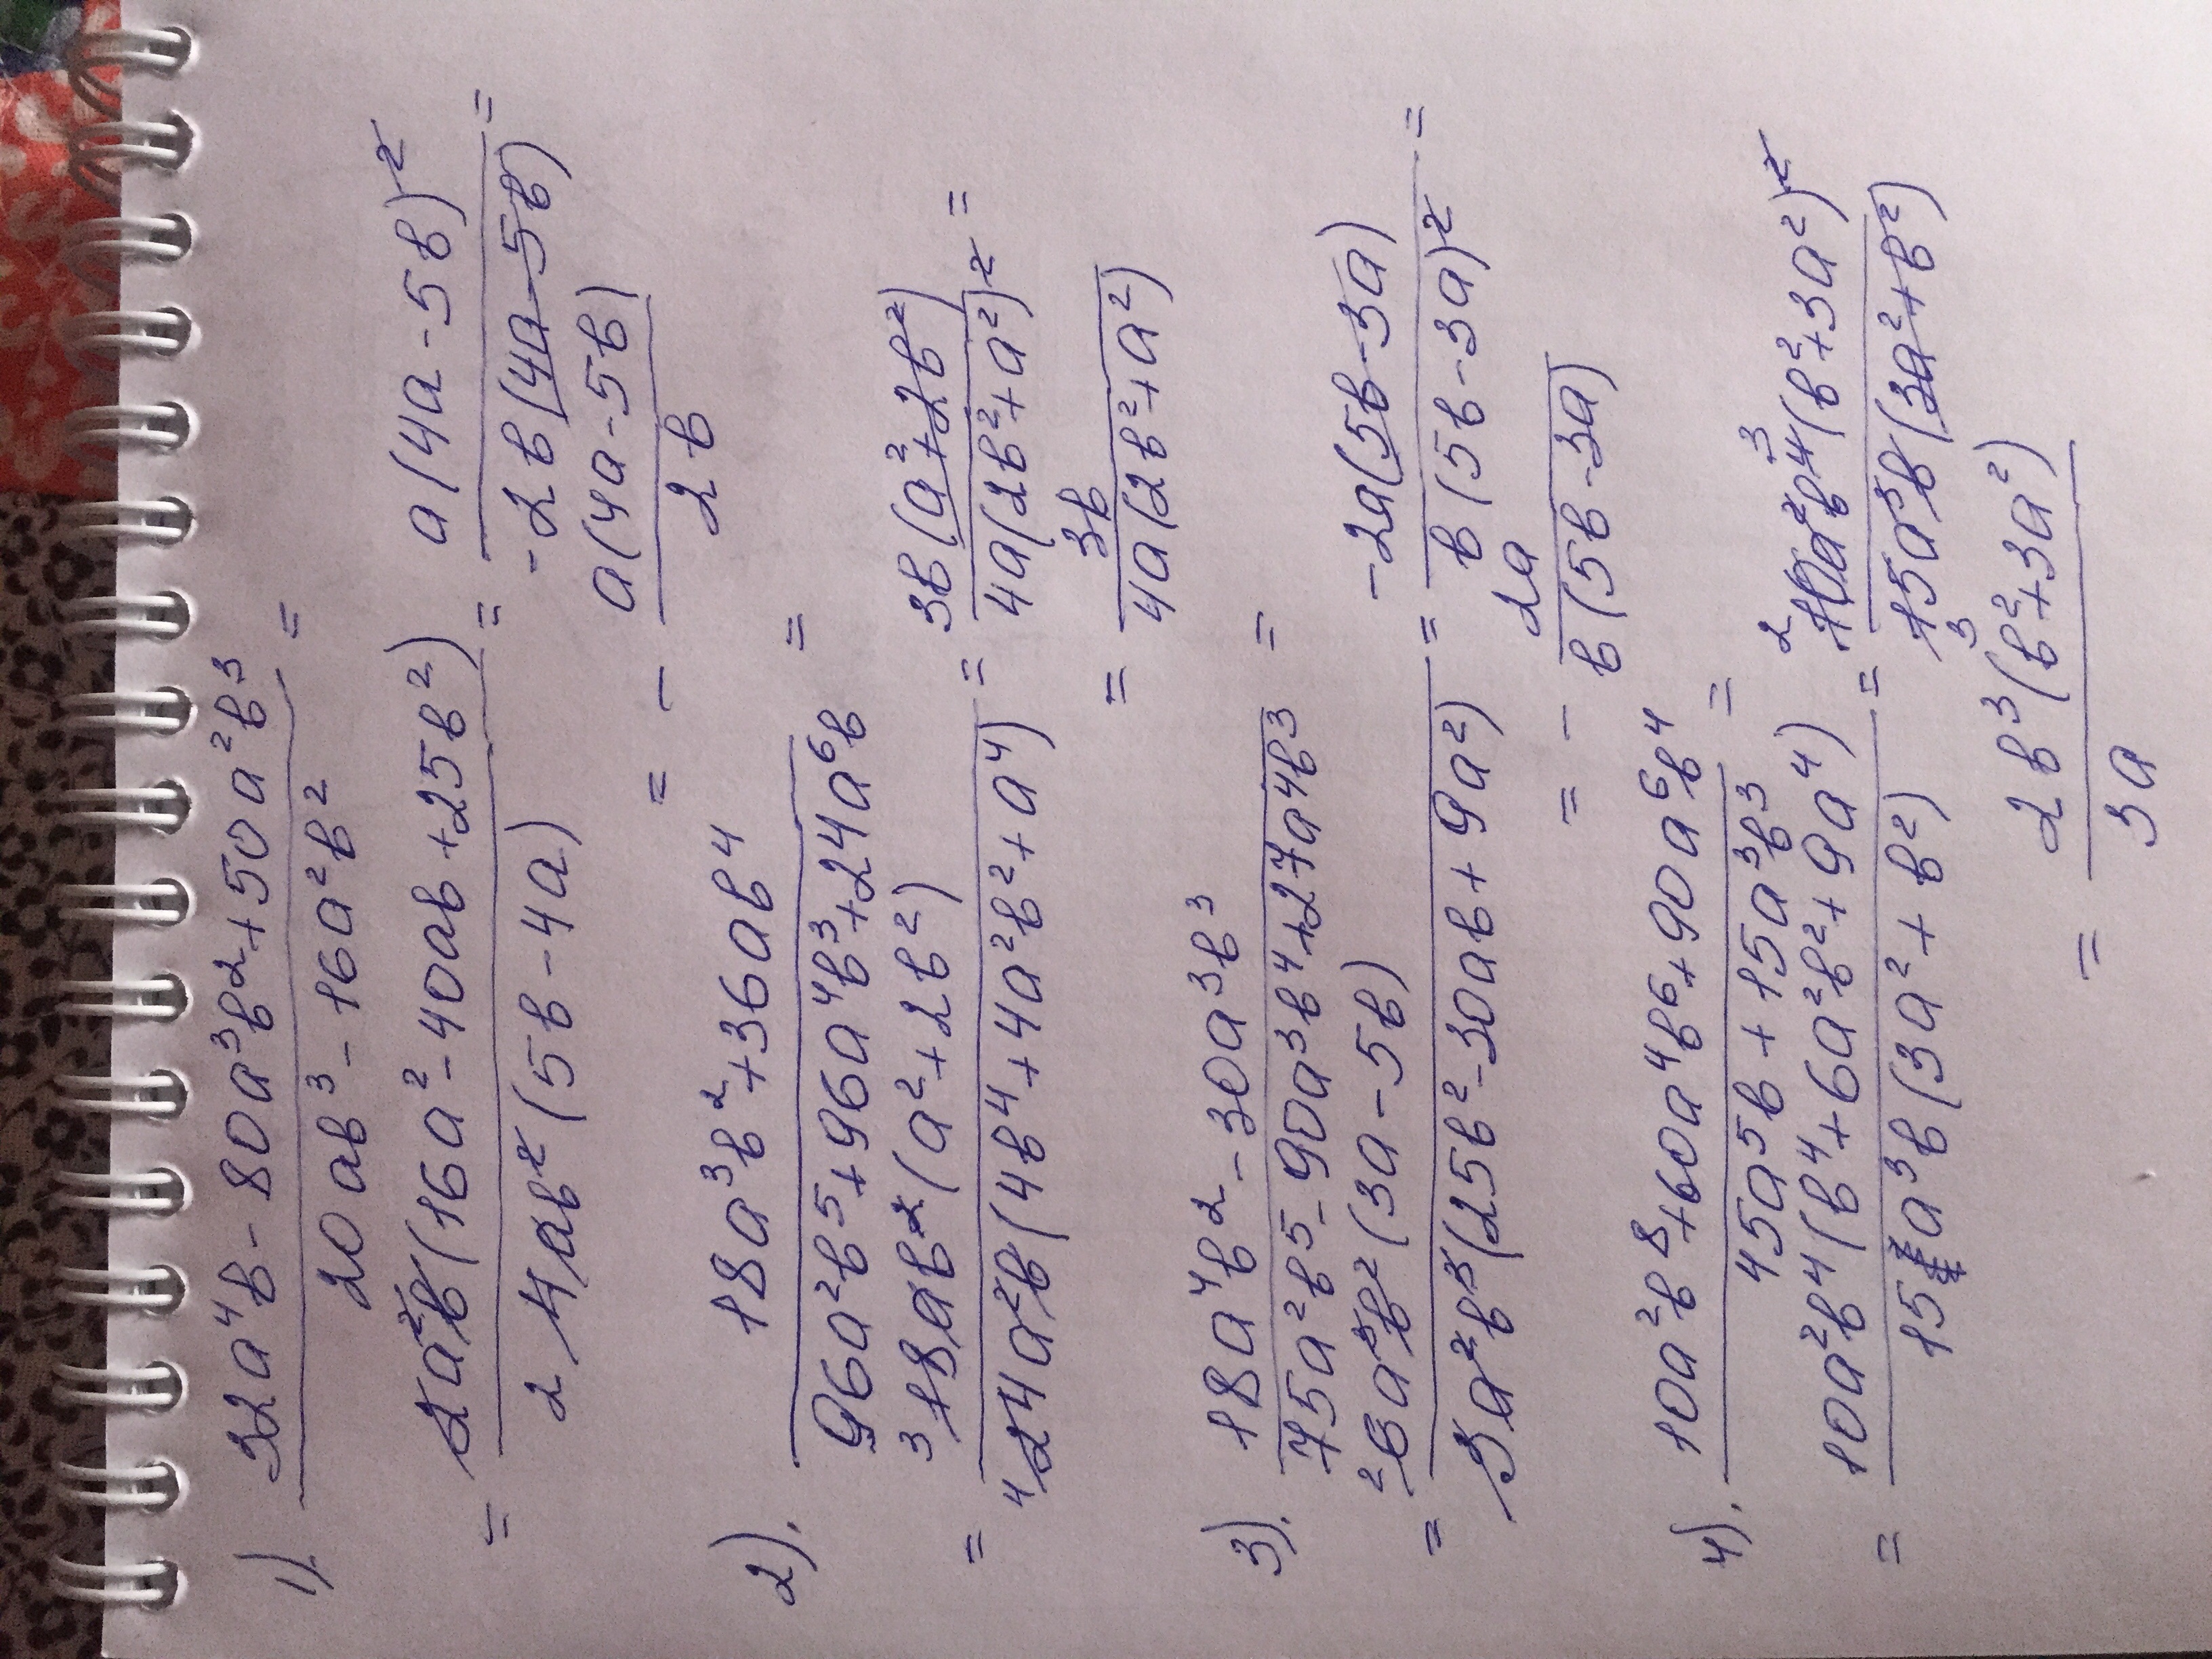 1). (32a⁴b - 80a³b² + 50a²b³)/(20ab³ - 16a²b²) =
= (2a²b(16a² - 40ab + 25b²))/(2 4ab²(5b - 4a)) = (a(4a - 5b)²)/(-2b(4a - 5b)) =
= - (a(4a - 5b))/(2b)
2). (18a³b² + 36ab⁴)/(96a²b⁵ + 96a⁴b³ + 24a⁶b) =
= (3 18ab²(a² + 2b²))/(4 24a²b(4b⁴ + 4a²b² + a⁴)) = (3b(a² + 2b²))/(4a(2b² + a²)²) =
= (3b)/(4a(2b² + a²))
3). (18a⁴b² - 30a³b³)/(75a²b⁵ - 90a³b⁴ + 27a⁴b³) =
= (2 6a³b²(3a - 5b))/(3a²b³(25b² - 30ab + 9a²)) = (-2a(5b - 3a))/(b(5b - 3a)²) =
= - (2a)/(b(5b - 3a))
4). (10a²b⁸ + 60a⁴b⁶ + 90a⁶b⁴)/(45a⁵b + 15a³b³) =
= (10a²b⁴(b⁴ + 6a²b² + 9a⁴))/(15a³b(3a² + b²)) = (2 10a²b⁴ 3(b² + 3a²)²)/(3 15a³b(3a² + b²))
= (2b³(b² + 3a²))/(3a)